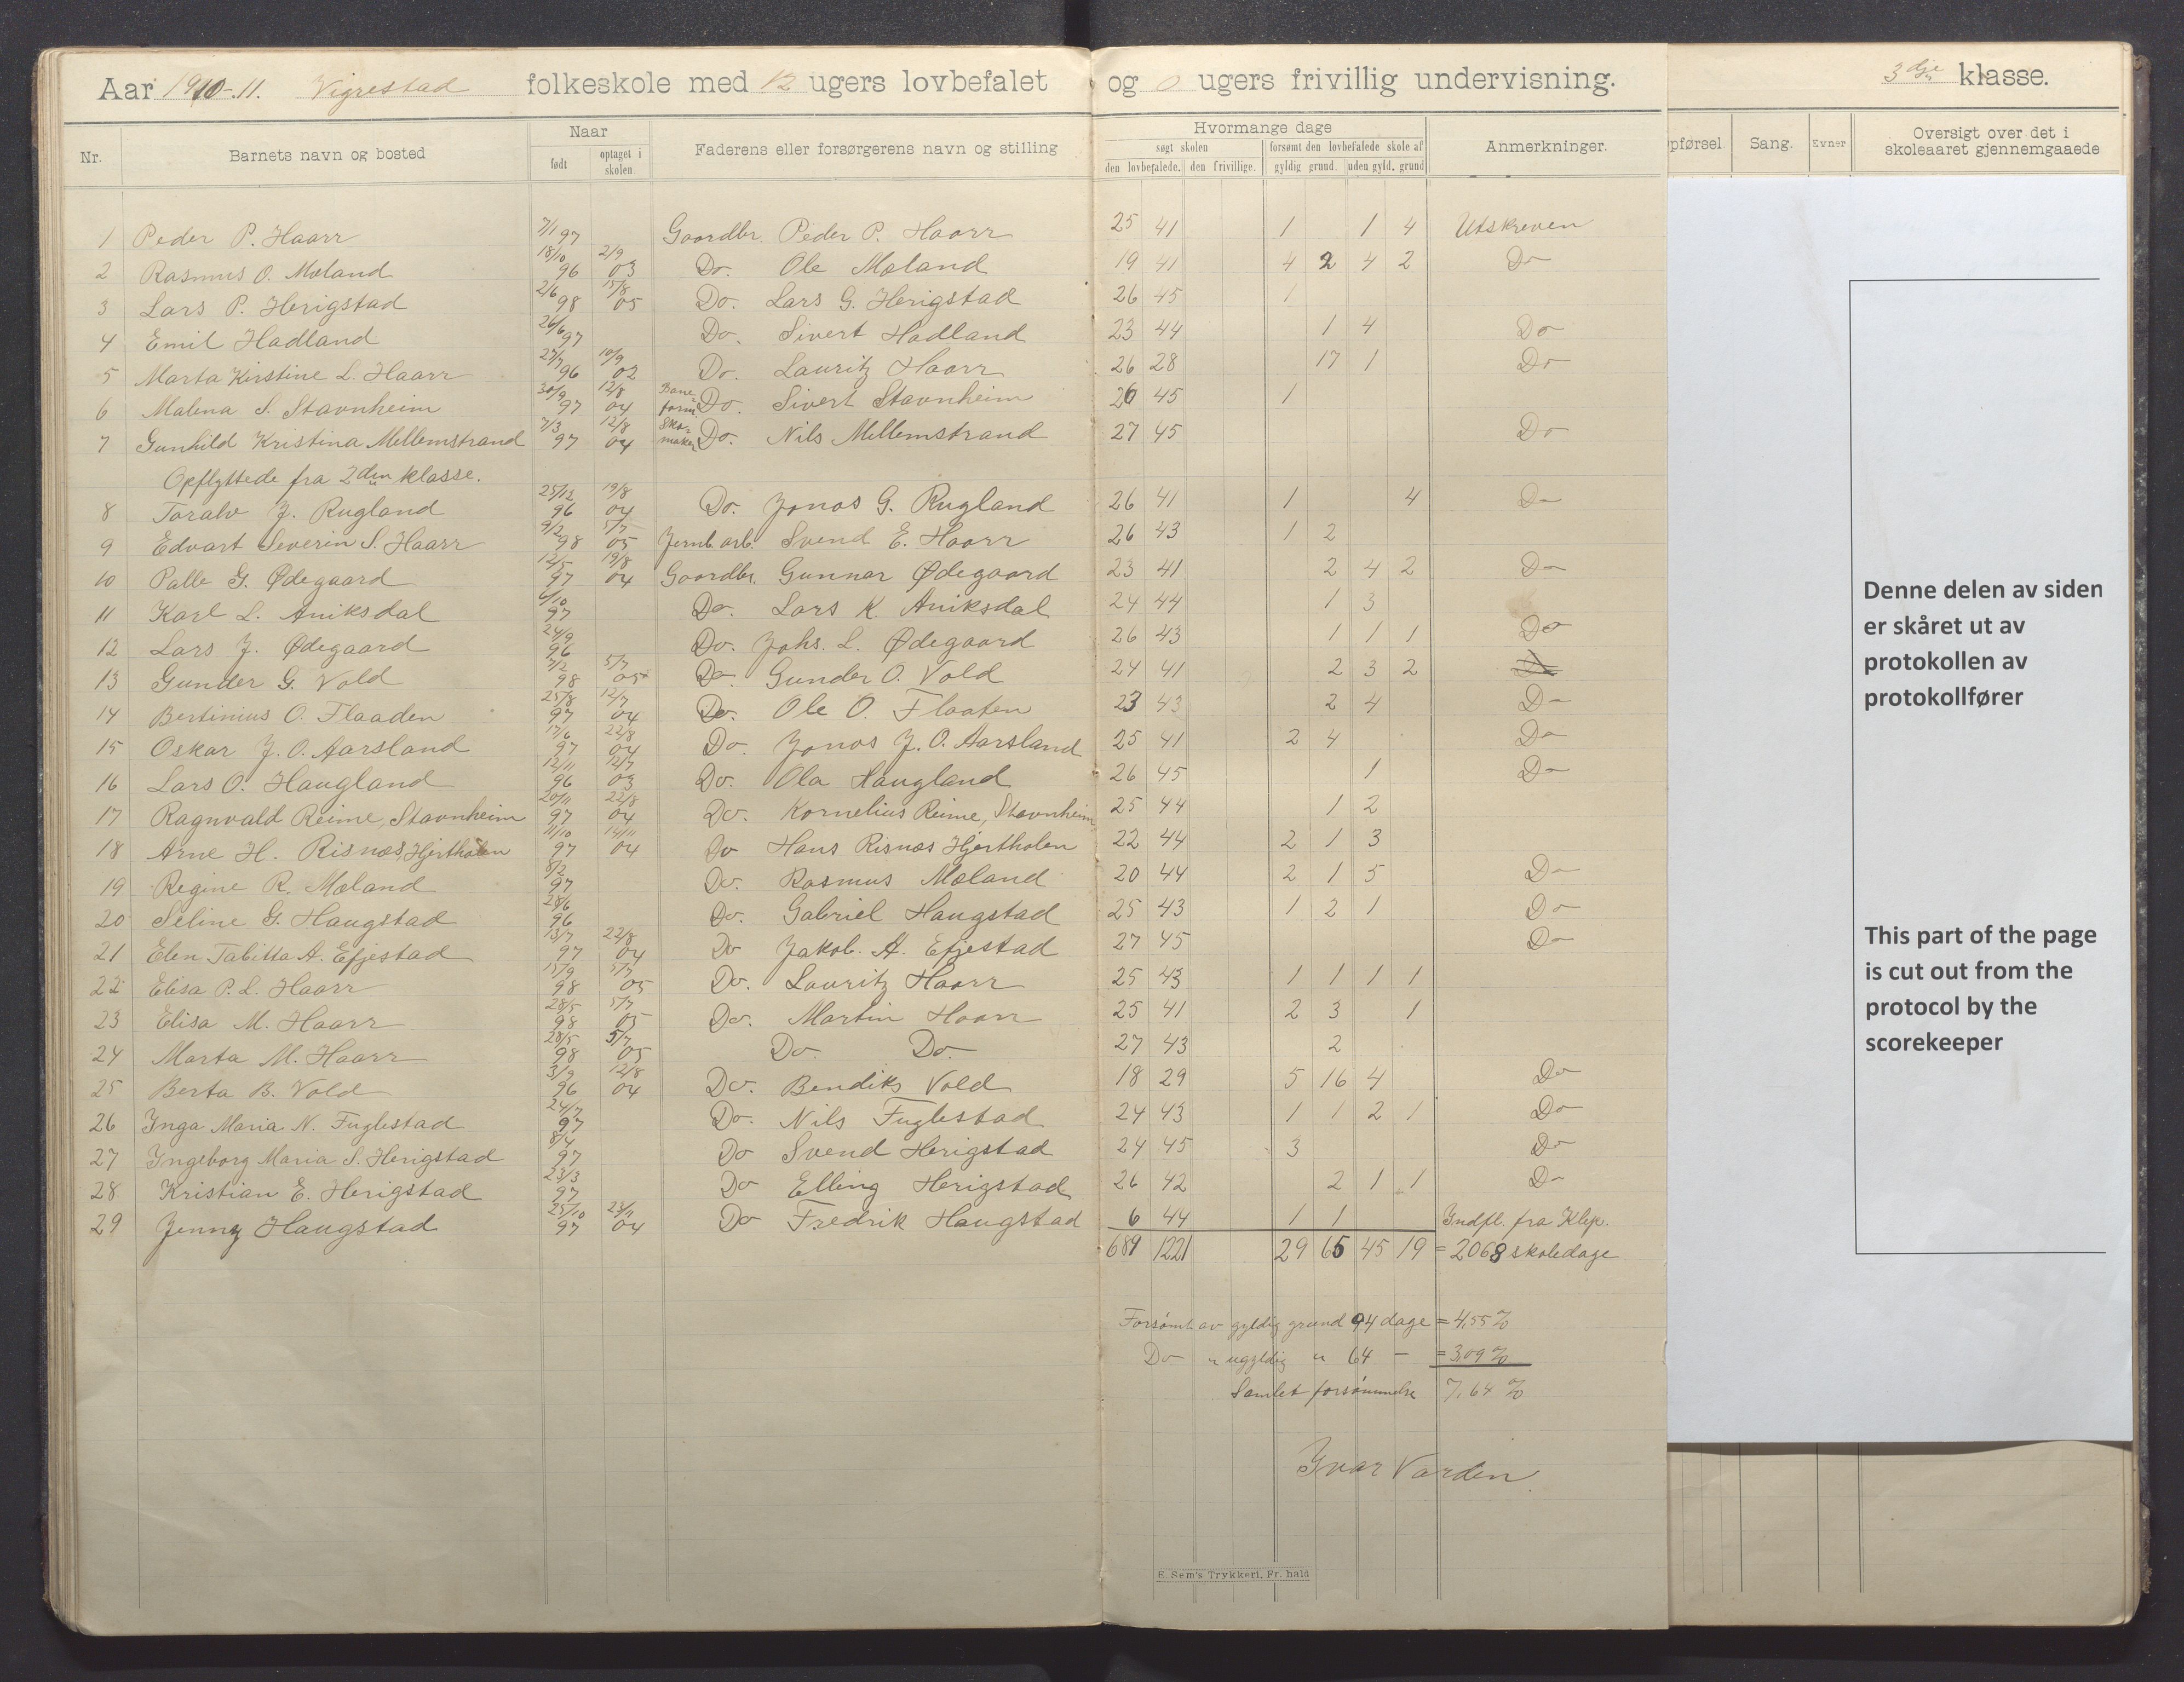 Aar 1910-11. Vigrestad folkeskole med 12 ugers lovbefalet og 0 ugers frivillig undervisning. 3dje klasse.
Nr. Barnets navn og bosted Naar født optaget i skolen. Faderens eller forsørgerens navn og stilling Hvormange dage søgt skolen den lovbefalede. den frivillige. forsømt den lovbefalede skole af gyldig grund. uden gyld. grund Anmerkninger. pførsel Sang. Evner Oversigt over det i skoleaaret gjennemgaaede
1 Peder P. Haarr 7/1 97 Gaardbr. Peder P. Haarr 25 41 1 1 4 Utskreven
2 Rasmus O. Mæland 18/10 96 2/9 03 Do. Ole Mæland 19 41 4 2 4 2 Do
3 Lars P. Herigstad 2/6 98 15/8 05 Do. Lars G. Herigstad 26 45 1
4 Emil Hadland 26/6 97 Do. Sivert Hadland 23 44 1 4 Do
5 Marta Kirstine L. Haarr 27/7 96 10/9 02 Do. Lauritz Haarr 26 28 17 1 Do
6 Malena S. Stavnheim 30/9 97 12/8 04 Bane-form. Do. Sivert Stavnheim 26 45 1
7 Gunhild Kristina Mellemstrand 7/3 97 12/8 04 Sko-maker Do. Nils Mellemstrand 27 45 Do
Opflyttede fra 2den klasse.
8 Toralv J. Rugland 25/12 96 19/8 04 Do. Jonas G. Rugland 26 41 1 4 Do
9 Edvart Severin S. Haarr 9/2 98 5/7 05 Jernb. arb. Svend E. Haarr 26 43 1 2
10 Palle G. Ødegaard 12/5 97 19/8 04 Gaardbr. Gunnar Ødegaard 23 41 2 4 2 Do
11 Karl L. Aniksdal 6/10 97 Do. Lars K. Aniksdal 24 44 1 3
12 Lars J. Ødegaard 24/9 96 Do. Johs. L. Ødegaard 26 43 1 1 1 Do
13 Gunder G. Vold 7/2 98 5/7 05 Do. Gunder O. Vold 24 41 2 3 2 Do
14 Bertinius O. Flaaden 25/8 97 12/7 04 Do. Ole O. Flaaten 23 43 2 4 Do
15 Oskar J. O. Aarsland 17/6 97 22/8 04 Do. Jonas J. O. Aarsland 25 41 2 4 Do
16 Lars O. Haugland 12/11 96 12/7 03 Do. Ola Haugland 26 45 1 Do
17 Ragnvald Reime, Stavnheim 20/11 97 22/8 04 Do. Kornelius Reime, Stavnheim 25 44 1 2
18 Arne H. Risnæs, Hjertholen 11/10 97 14/11 04 Do Hans Risnæs Hjertholen 22 44 2 1 3
19 Regine R. Mæland 8/2 97 Do. Rasmus Mæland 20 44 2 1 5 Do
20 Seline G. Haugstad 28/6 96 Do. Gabriel Haugstad 25 43 1 2 1 Do
21 Elen Tabitta A. Efjestad 13/7 97 22/8 04 Do Jakob. A. Efjestad 27 45 Do
22 Elisa P. L. Haarr 15/9 98 5/7 05 Do. Lauritz Haarr 25 43 1 1 1 1
23 Elisa M. Haarr 28/5 98 5/7 05 Do. Martin Haarr 25 41 2 3 1
24 Marta M. Haarr 28/5 98 5/7 05 Do. Do. 27 43 2
25 Berta B. Vold 3/9 96 12/8 04 Do. Bendiks Vold 18 29 5 16 4 Do
26 Inga Maria N. Fuglestad 24/7 97 Do. Nils Fuglestad 24 43 1 1 2 1 Do
27 Ingeborg Maria S. Herigstad 8/4 97 Do Svend Herigstad 24 45 3 Do
28 Kristian E. Herigstad 23/3 97 Do Elling Herigstad 26 42 2 1 1 Do
29 Jenny Haugstad 25/10 97 23/11 04 Do Fredrik Haugstad 6 44 1 1 Indfl. fra Klep.
689 1221 29 65 45 19 = 2068 skoledage
Forsømt av gyldig grund 94 dage = 4,55 %
Do " ugyldig " 64 – = 3,09 %
Samlet forsømmelse 7,64 %
Ivar Varden.
E. Sem's Trykkeri, Fr. hald
Denne delen av siden
er skåret ut av
protokollen av
protokollfører
This part of the page
is cut out from the
protocol by the
scorekeeper